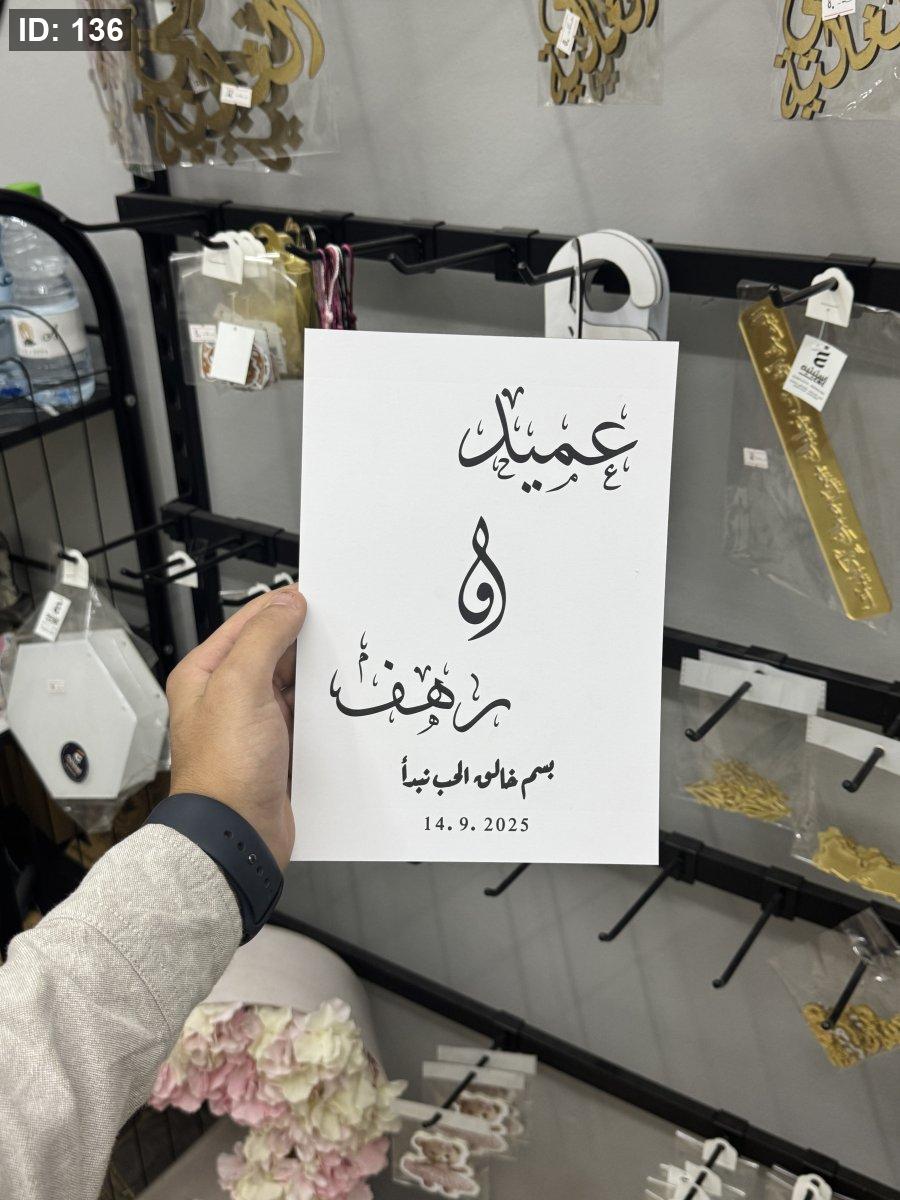 ID: 136
عميد
و
رهف
بسم خالق الحب نبدأ
14. 9. 2025